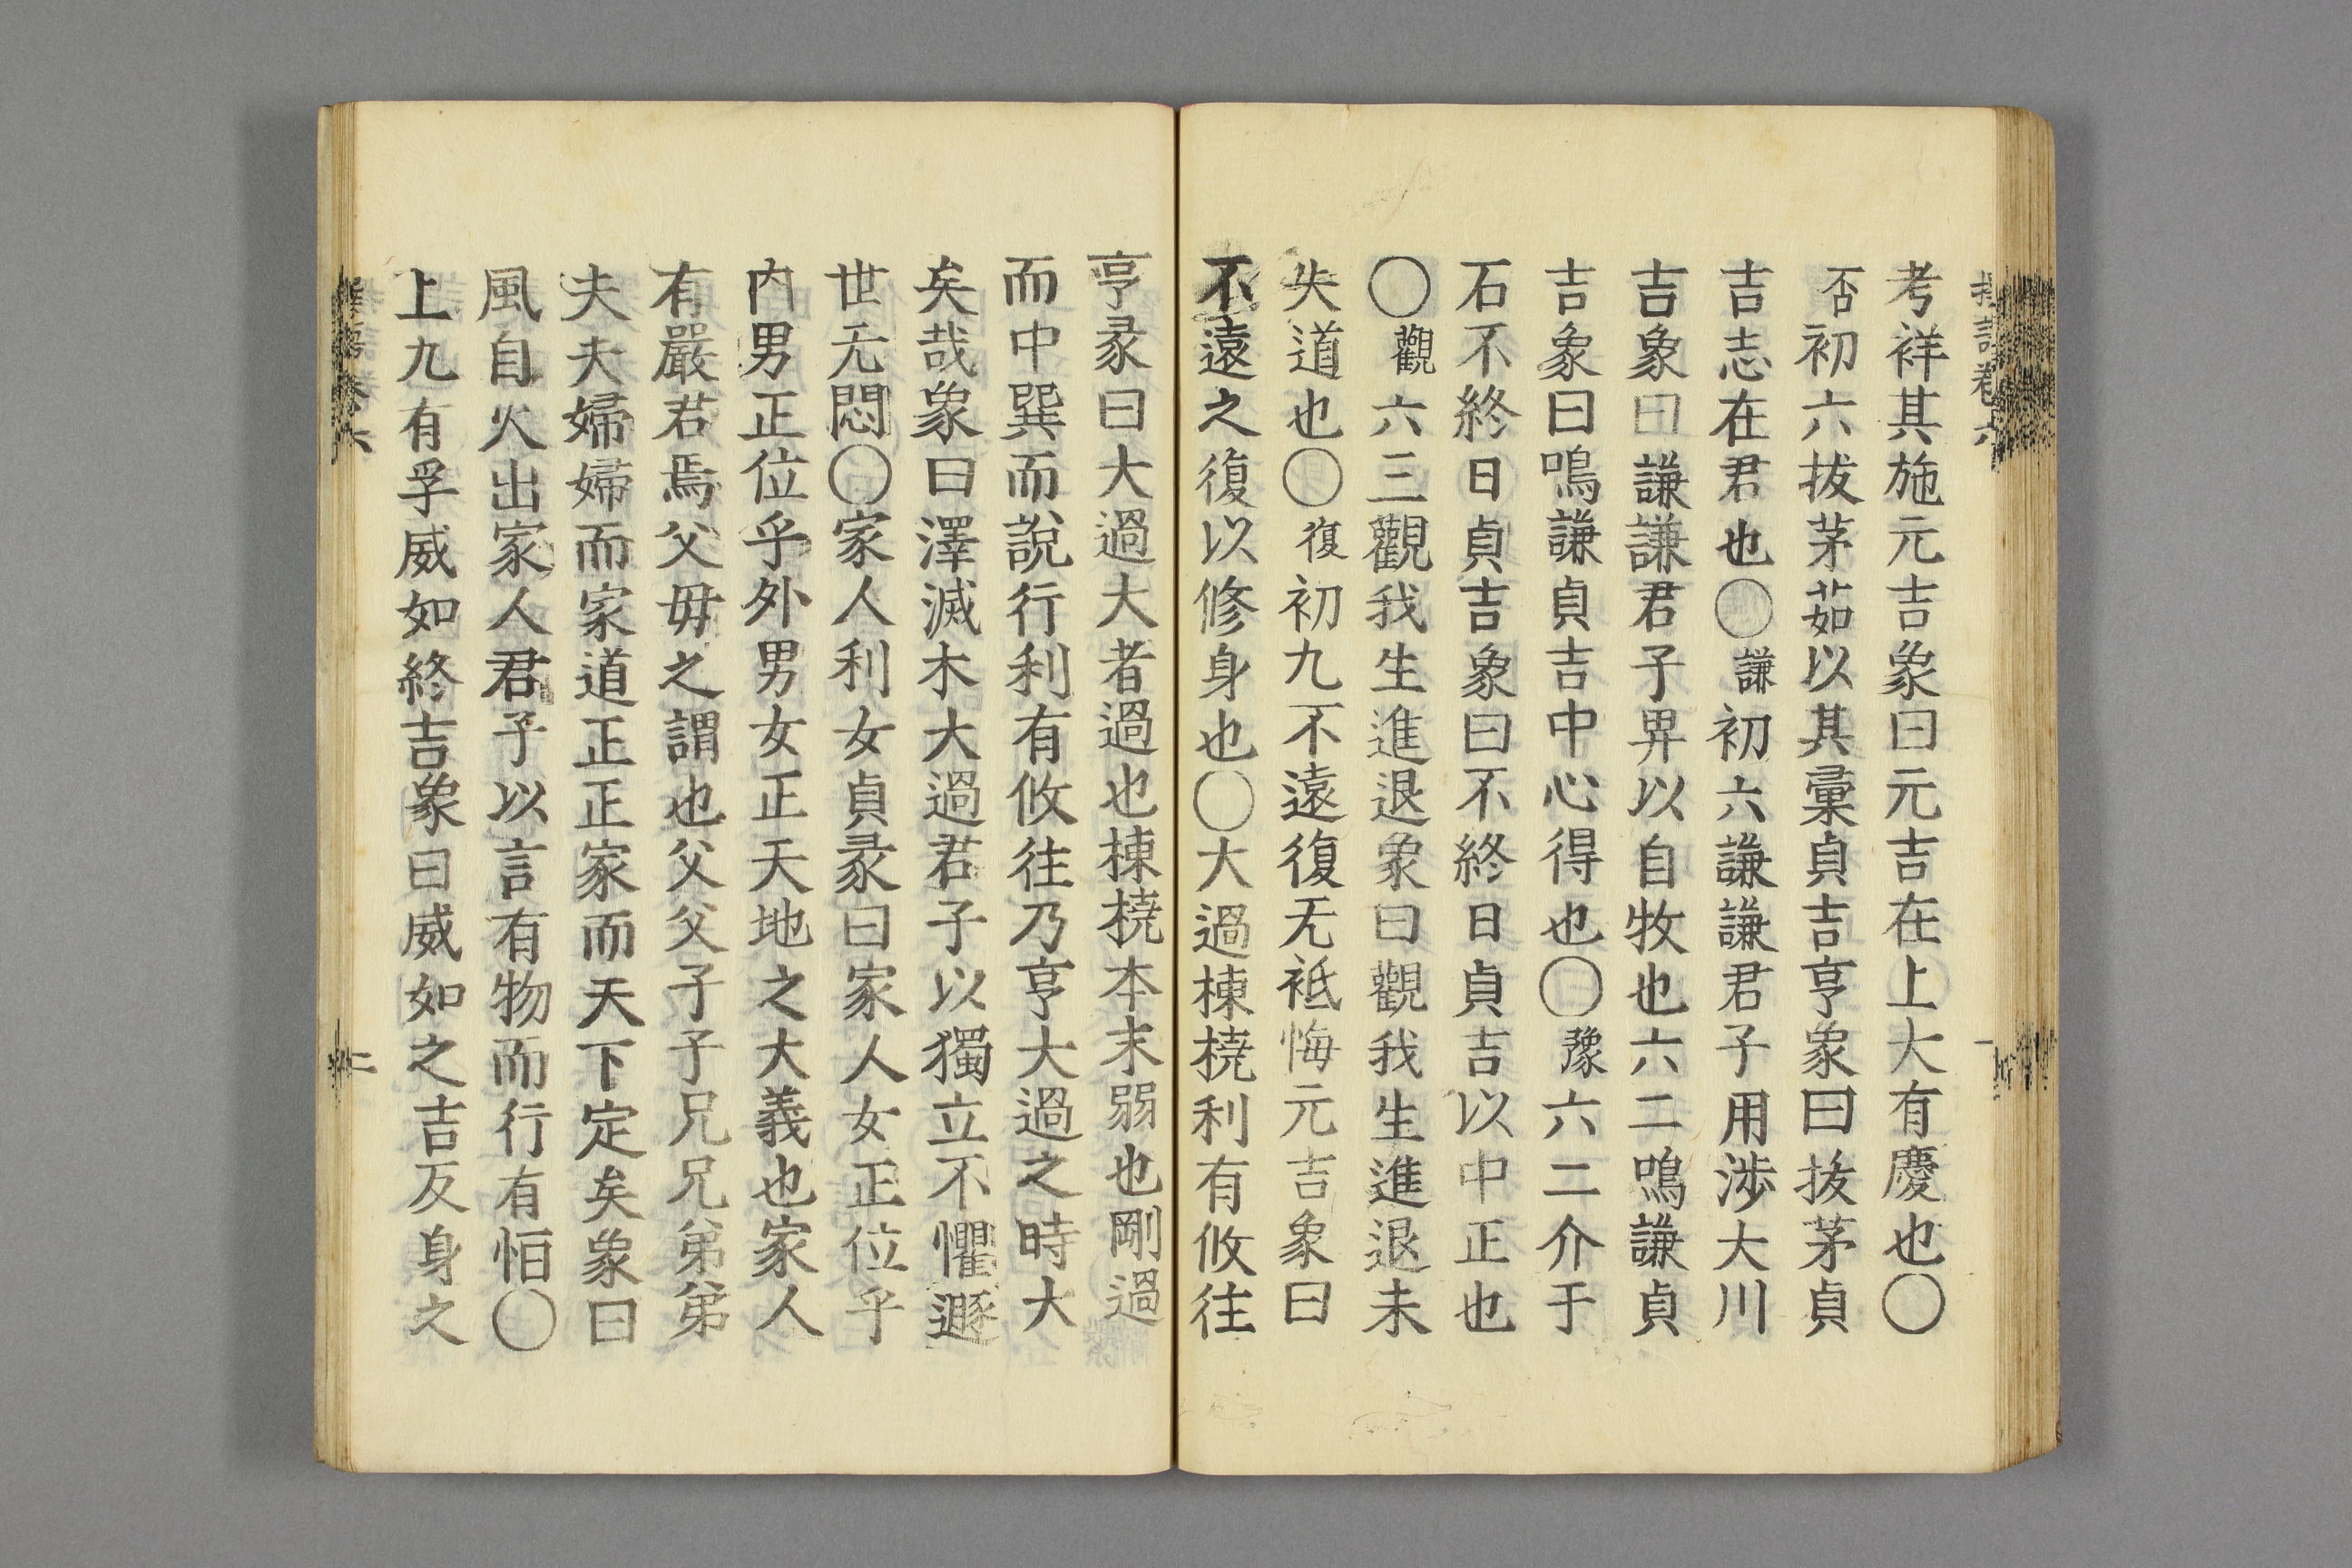 考祥其施元吉象曰元吉在上大有慶也〇
否初六拔茅茹以其彙貞吉亨象曰拔茅貞
吉志在君也〇謙初六謙謙君子用渉大川
吉象曰謙謙君子畀以自牧也六二鳴謙貞
吉象曰鳴謙貞吉中心得也〇豫六二介于
石不終日貞吉象曰不終日貞吉以中正也
〇觀六三觀我生進退象曰觀我生進退未
失道也〇復初九不遠復无袛悔元吉象曰
不遠之復以修身也〇大過棟橈利有攸往
亨彖曰大過大者過也棟橈本末弱也剛過
而中巽而說行利有攸往乃亨大過之時大
矣哉象曰澤滅木大過君子以獨立不懼遯
世无悶〇家人利女貞彖曰家人女正位乎
内男正位乎外男女正天地之大義也家人
有嚴君焉父毋之謂也父父子子兄兄弟弟
夫夫婦婦而家道正正家而天下定矣象曰
風自火出家人君子以言有物而行有恒〇
上九有孚威如終吉象曰威如之吉反身之